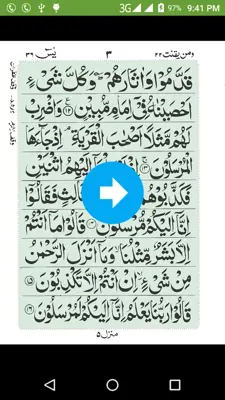 3G 97% 9:41 PM
ومن يقنت ٢٢ ٣ يٰسٓ ٣٦
قَدَّمُوْا وَاٰثَارَهُمْ ؕ وَكُلَّ شَىْءٍ
اَحْصَيْنٰهُ فِىْۤ اِمَامٍ مُّبِيْنٍ ﴿۱۲﴾ وَاضْرِبْ
لَهُمْ مَّثَلًا اَصْحٰبَ الْقَرْيَةِ ۘ اِذْ جَآءَهَا
الْمُرْسَلُوْنَ ﴿۱۳﴾ اِلَيْهِمُ اثْنَيْنِ
فَكَذَّبُوْهُمَا فَقَالُوْۤا
اِنَّاۤ اِلَيْكُمْ مُّرْسَلُوْنَ ﴿۱۴﴾ قَالُوْا مَاۤ اَنْتُمْ
اِلَّا بَشَرٌ مِّثْلُنَا ۙ وَمَاۤ اَنْزَلَ الرَّحْمٰنُ
مِنْ شَىْءٍ ۙ اِنْ اَنْتُمْ اِلَّا تَكْذِبُوْنَ ﴿۱۵﴾
قَالُوْا رَبُّنَا يَعْلَمُ اِنَّاۤ اِلَيْكُمْ لَمُرْسَلُوْنَ ﴿۱۶﴾
منزل ۵